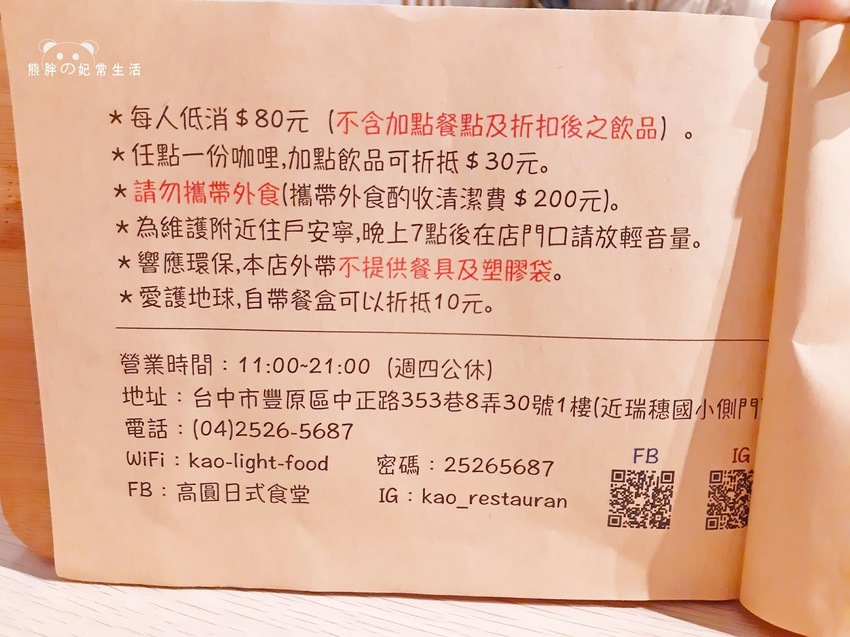 熊胖の妃常生活
★每人低消$80元 (不含加點餐點及折扣後之飲品)。
★任點一份咖哩,加點飲品可折抵$30元。
★請勿攜帶外食(攜帶外食酌收清潔費$200元)。
★為維護附近住戶安寧,晚上7點後在店門口請放輕音量。
★響應環保,本店外帶不提供餐具及塑膠袋。
★愛護地球,自帶餐盒可以折抵10元。
營業時間：11:00~21:00 (週四公休)
地址：台中市豐原區中正路353巷8弄30號1樓(近瑞穗國小側門
電話：(04)2526-5687
WiFi：kao-light-food 密碼：25265687
FB：高圓日式食堂 IG：kao_restauran
FB IG